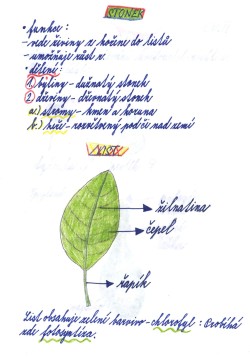 STONEK
• funkce:
- vede živiny z kořene do listů
- umožňuje růst v.
• dělení:
1) byliny - dužnatý stonek
2) dřeviny - dřevnatý stonek
a) stromy - kmen a koruna
b) keře - rozvětvený počí nad zemí
LIST
žilnatina
čepel
řapík
List obsahuje zelené barvivo - chlorofyl: Probíhá
zde fotosyntéza.